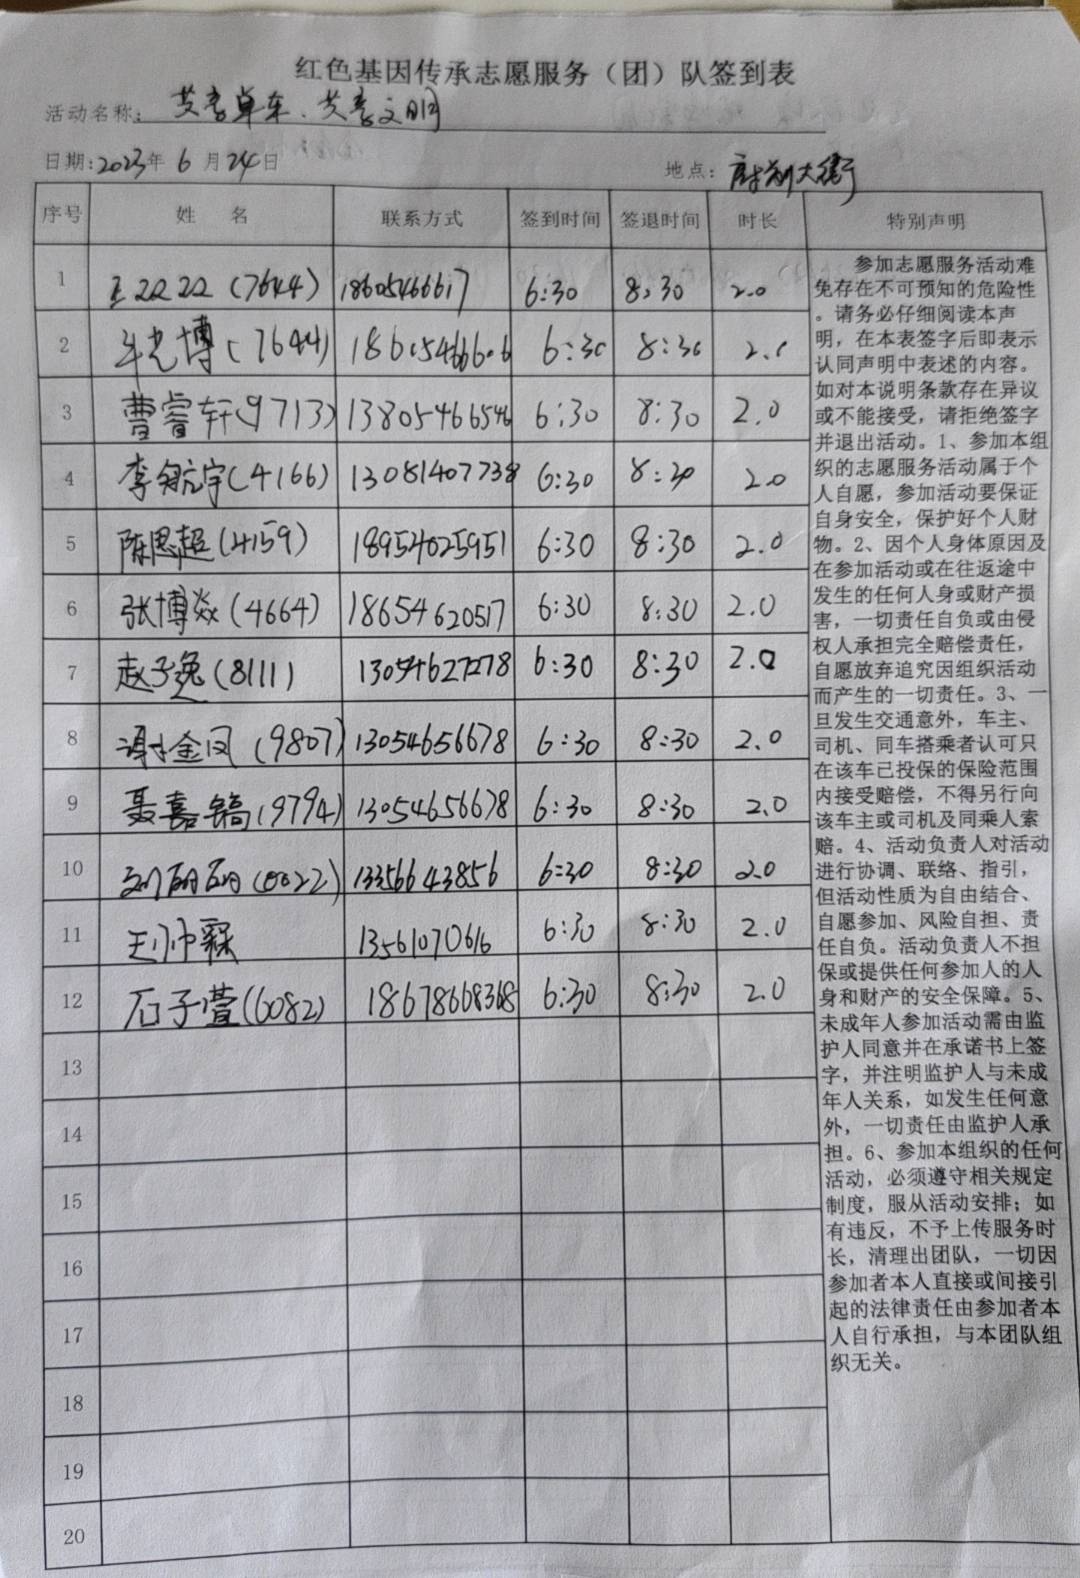 红色基因传承志愿服务（团）队签到表
活动名称：共享单车、共享文明
日期：2023年 6 月 24日 地点：府前大街
序号 姓 名 联系方式 签到时间 签退时间 时长 特别声明
1 王 (7644) 18605466617 6:30 8:30 2.0
2 牟光博 (7644) 18605466606 6:30 8:30 2.0
3 曹睿轩(9713) 13805466546 6:30 8:30 2.0
4 李航宇(4166) 13081407738 6:30 8:30 2.0
5 陈思超(4159) 18954025951 6:30 8:30 2.0
6 张博焱(4664) 18654620517 6:30 8:30 2.0
7 赵子逸(8111) 13054627278 6:30 8:30 2.0
8 谢金凤(9807) 13054656678 6:30 8:30 2.0
9 聂嘉镐(9794) 13054656678 6:30 8:30 2.0
10 刘丽丽(0022) 13356643856 6:30 8:30 2.0
11 王帅霖 13561070616 6:30 8:30 2.0
12 石子萱(6082) 18678668368 6:30 8:30 2.0
13
14
15
16
17
18
19
20
参加志愿服务活动难
免存在不可预知的危险性
。请务必仔细阅读本声
明，在本表签字后即表示
认同声明中表述的内容。
如对本说明条款存在异议
或不能接受，请拒绝签字
并退出活动。1、参加本组
织的志愿服务活动属于个
人自愿，参加活动要保证
自身安全，保护好个人财
物。2、因个人身体原因及
在参加活动或在往返途中
发生的任何人身或财产损
害，一切责任自负或由侵
权人承担完全赔偿责任，
自愿放弃追究因组织活动
而产生的一切责任。3、一
旦发生交通意外，车主、
司机、同车搭乘者认可只
在该车已投保的保险范围
内接受赔偿，不得另行向
该车主或司机及同乘人索
赔。4、活动负责人对活动
进行协调、联络、指引，
但活动性质为自由结合、
自愿参加、风险自担、责
任自负。活动负责人不担
保或提供任何参加人的人
身和财产的安全保障。5、
未成年人参加活动需由监
护人同意并在承诺书上签
字，并注明监护人与未成
年人关系，如发生任何意
外，一切责任由监护人承
担。6、参加本组织的任何
活动，必须遵守相关规定
制度，服从活动安排；如
有违反，不予上传服务时
长，清理出团队，一切因
参加者本人直接或间接引
起的法律责任由参加者本
人自行承担，与本团队组
织无关。